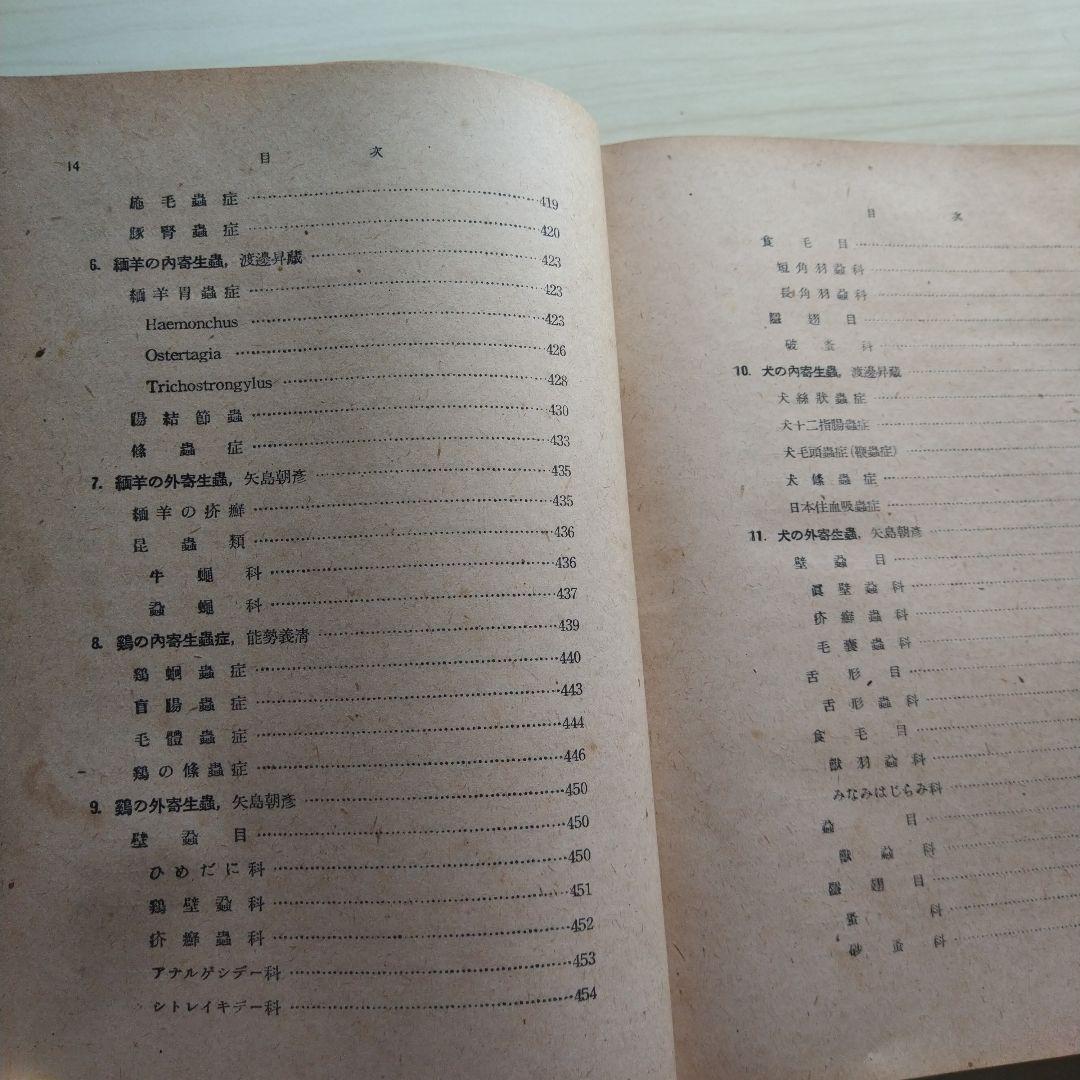 14 目次
施毛蟲症 419
豚腎蟲症 420
6. 緬羊の內寄生蟲, 渡邊昇藏 423
緬羊胃蟲症 423
Haemonchus 423
Ostertagia 426
Trichostrongylus 428
腸結節蟲 430
條蟲症 433
7. 緬羊の外寄生蟲, 矢島朝彥 435
緬羊の疥癬 435
昆蟲類 436
牛蠅科 436
蝨蠅科 437
8. 鷄の內寄生蟲症, 能勢義淸 439
鷄蛔蟲症 440
盲腸蟲症 443
毛體蟲症 444
鷄の條蟲症 446
9. 鷄の外寄生蟲, 矢島朝彥 450
壁蝨目 450
ひめだに科 450
鷄壁蝨科 451
疥癬蟲科 452
アナルゲシデー科 453
シトレイキデー科 454
目次
食毛目
短角羽蝨科
長角羽蝨科
隱翅目
破蚤科
10. 犬の內寄生蟲, 渡邊昇藏
犬絲狀蟲症
犬十二指腸蟲症
犬毛頭蟲症(鞭蟲症)
犬條蟲症
日本住血吸蟲症
11. 犬の外寄生蟲, 矢島朝彥
壁蝨目
眞壁蝨科
疥癬蟲科
毛囊蟲科
舌形目
舌形蟲科
食毛目
獸羽蝨科
みなみはじらみ科
蝨目
獸蝨科
隱翅目
蚤科
砂蚤科